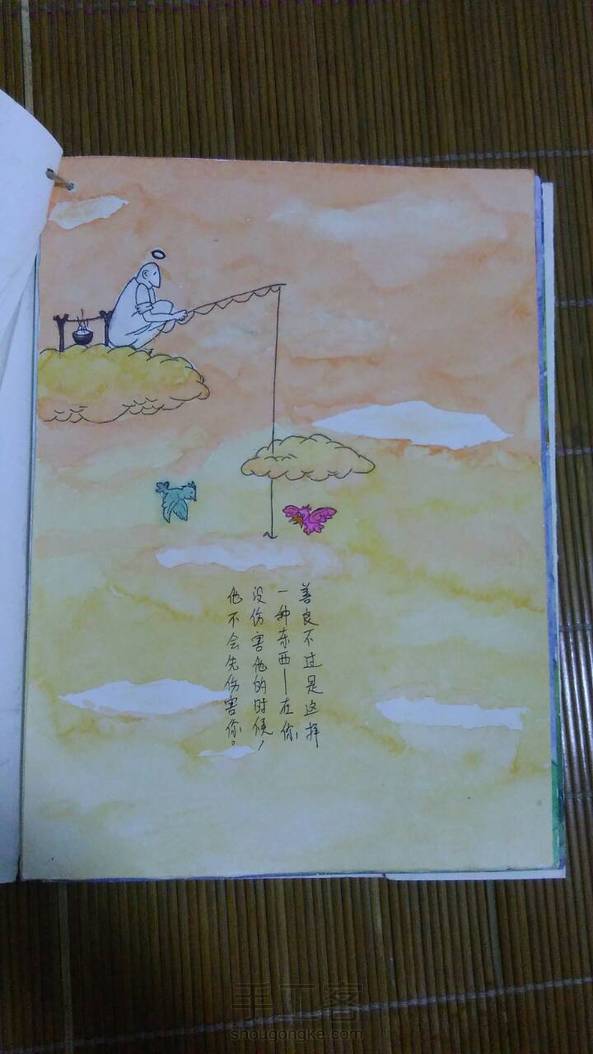 善良不过是这样
一种东西——在你
没伤害他的时候，
他不会先伤害你。
手工客
shougongke.com